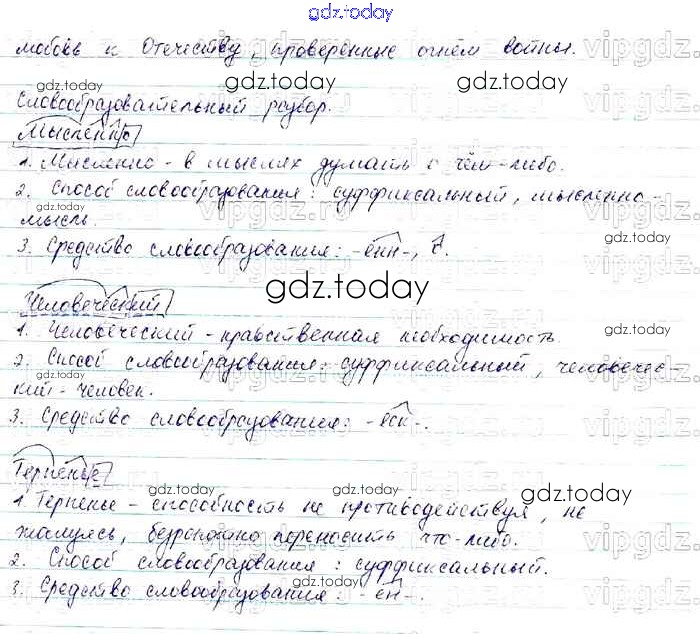 gdz.today
любовь к Отечеству, проверенные огнём войны.
Словообразовательный разбор.
Мысленно
1. Мысленно - в мыслях думать о чём-либо.
2. Способ словообразования: суффиксальный, мысленно -
мысль.
3. Средство словообразования: -енн-, -о.
gdz.today
Человеческий
1. Человеческий - нравственная необходимость.
2. Способ словообразования: суффиксальный, человечес-
кий - человек.
3. Средство словообразования: -еск-.
Терпенье
1. Терпенье - способность не противодействуя, не
жалуясь, безропотно переносить что-либо.
2. Способ словообразования: суффиксальный.
3. Средство словообразования: -ен-.